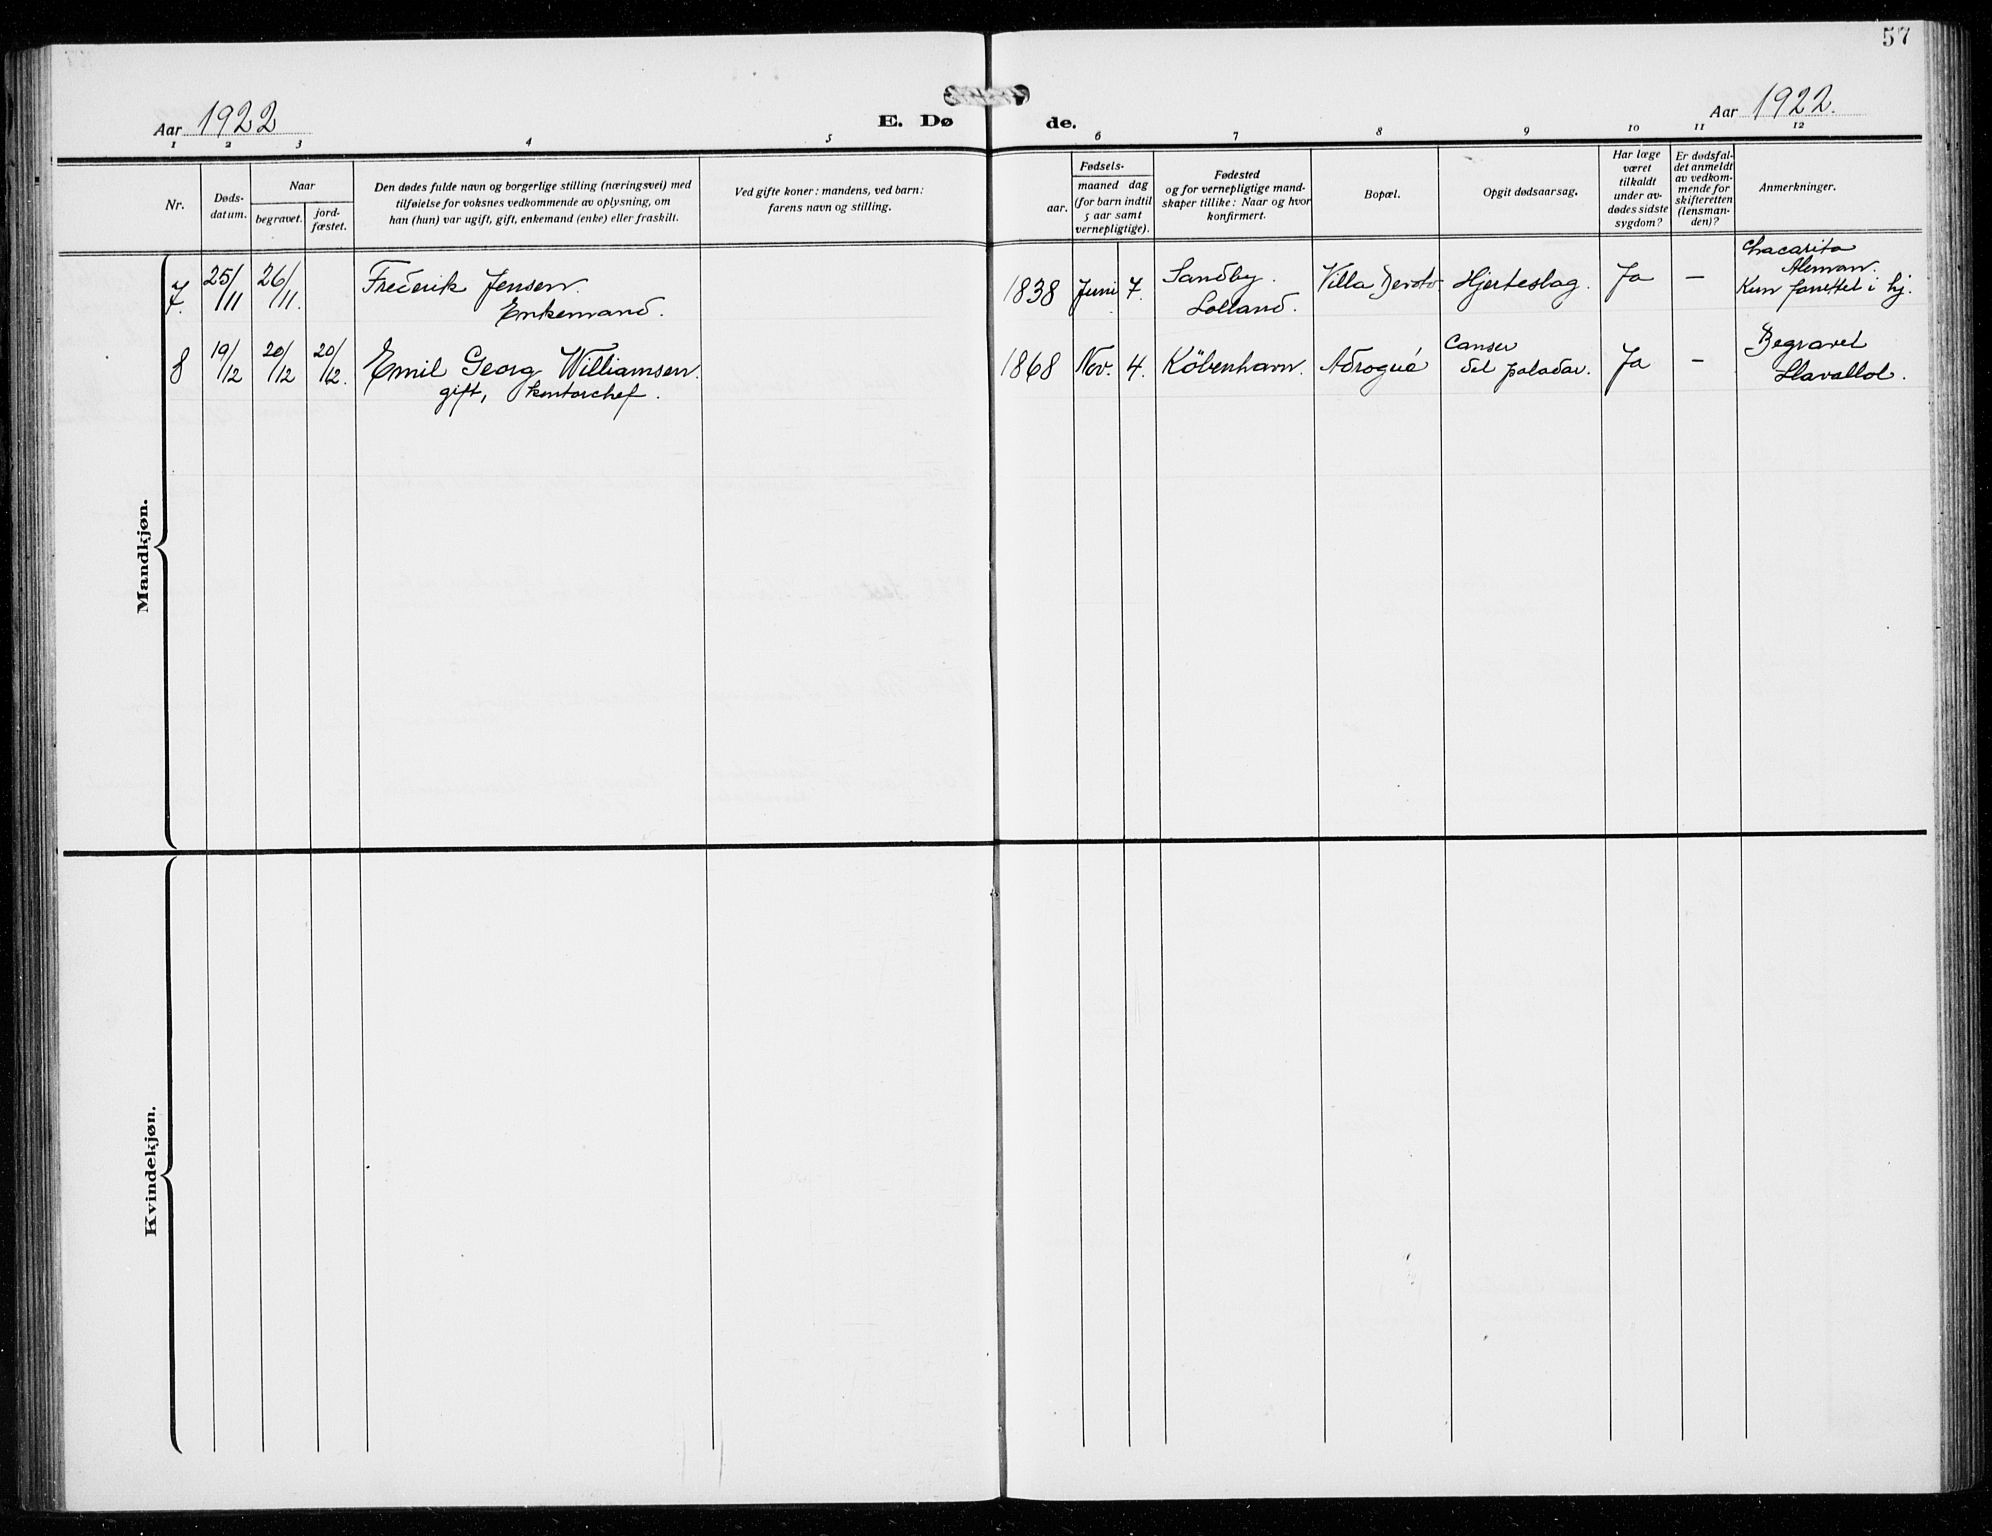 57
Aar 1922
E. Dø
de.
Aar 1922.
1 2 3 4 5 6 7 8 9 10 11 12
Nr.
Døds-
datum.
Naar
begravet.
jord-
fæstet.
Den dødes fulde navn og borgerlige stilling (næringsvei) med
tilføielse for voksnes vedkommende av oplysning, om
han (hun) var ugift, gift, enkemand (enke) eller fraskilt.
Ved gifte koner: mandens, ved barn:
farens navn og stilling.
Fødsels-
aar.
maaned dag
(for barn indtil
5 aar samt
vernepligtige).
Fødested
og for vernepligtige mand-
skaper tillike: Naar og hvor
konfirmert.
Bopæl.
Opgit dødsaarsag.
Har læge
været
tilkaldt
under av-
dødes sidste
sygdom?
Er dødsfal-
det anmeldt
av vedkom-
mende for
skifteretten
(lensman-
den)?
Anmerkninger.
Mandkjøn.
7. 25/11 26/11. Frederik Jensen. 1838 Juni 7. Sandby. Villa Devoto Hjerteslag. Ja — Chacarita
Aleman.
Enkemand. Lolland. Kun forrettet i hj.
8 19/12 20/12 20/12. Emil Georg Williamsen. 1868 Nov. 4. København. Adrogué Canser Ja — Begravet
gift, kontorchef. del paladar. Llavallol.
Kvindekjøn.